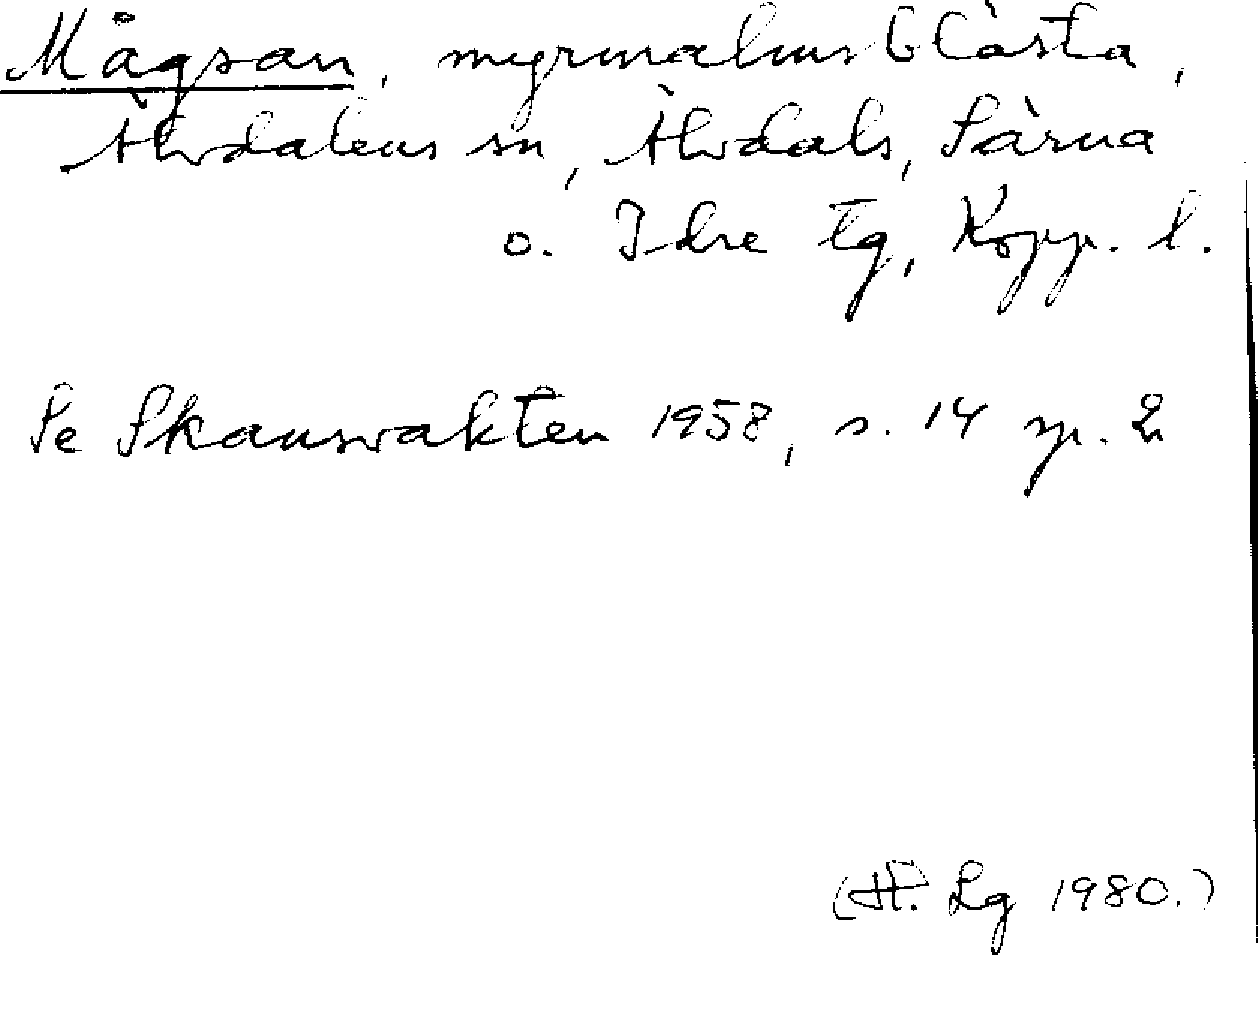 Mågsan, myrmalmsblästa,
Älvdalens sn, Älvdals, Särna
o. Idre tg, Kopp. l.
Se Skansvakten 1958, s. 14 sp. 2
(H. Lg 1980.)